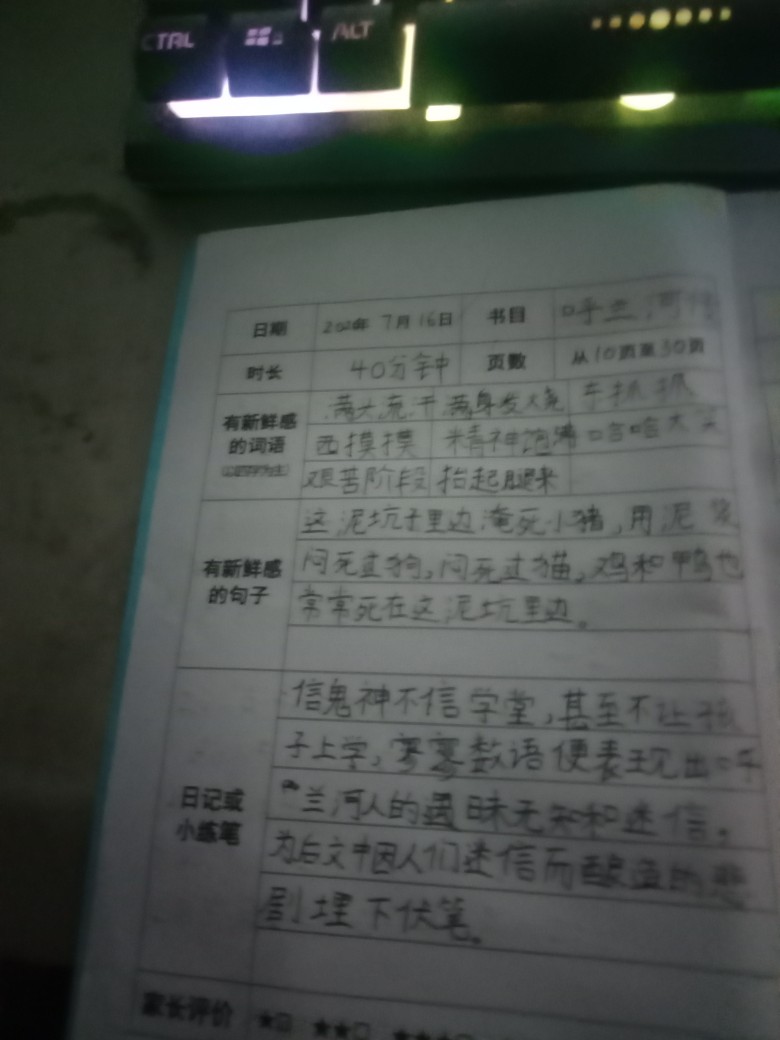 CTRL ALT
日期 2020年 7月16日 书目 呼兰河传
时长 40分钟 页数 从10页至30页
有新鲜感的词语 满身发烧 东抓抓
西摸摸 精神饱满 哈哈大笑
艰苦阶段 抬起腿来
有新鲜感的句子 这泥坑子里边淹死小猪,用泥浆
闷死过狗,闷死过猫,鸡和鸭也
常常死在这泥坑里边。
日记或小练笔 信鬼神不信学堂,甚至不让孩
子上学,寥寥数语便表现出呼
兰河人的愚昧无知和迷信,
为后文中因人们迷信而酿造的悲
剧埋下伏笔。
家长评价 ★□ ★★□ ★★★□